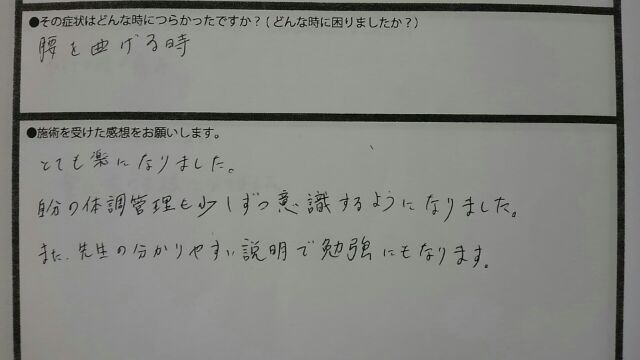 ●その症状はどんな時につらかったですか？(どんな時に困りましたか？)
腰を曲げる時
●施術を受けた感想をお願いします。
とても楽になりました。
自分の体調管理も少しずつ意識するようになりました。
また、先生の分かりやすい説明で勉強にもなります。